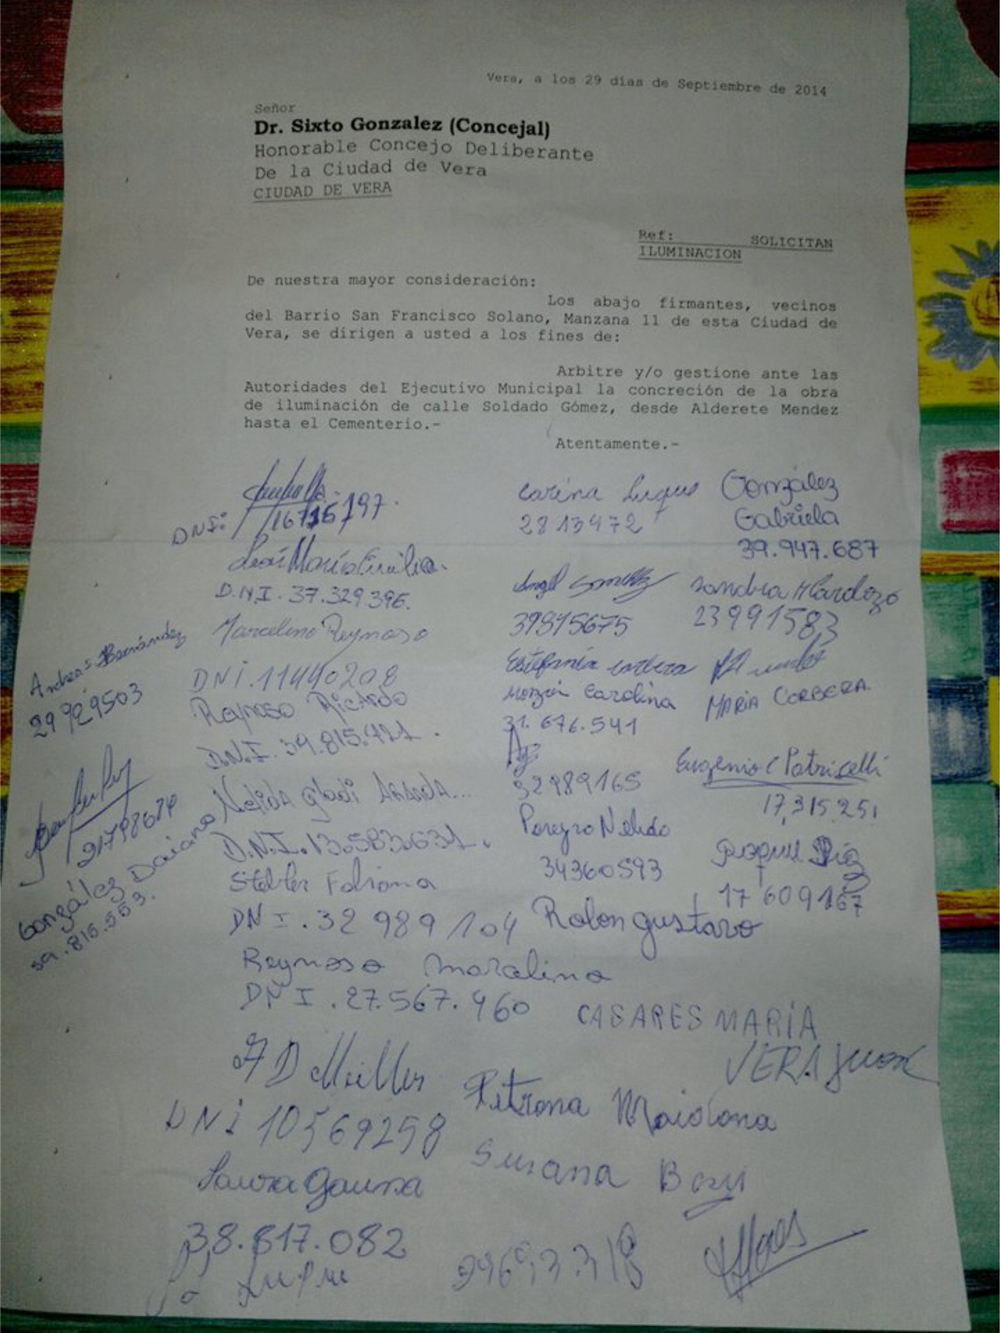 Vera, a los 29 días de Septiembre de 2014
Señor
Dr. Sixto Gonzalez (Concejal)
Honorable Concejo Deliberante
De la Ciudad de Vera
CIUDAD DE VERA
Ref: SOLICITAN
ILUMINACION
De nuestra mayor consideración:
Los abajo firmantes, vecinos
del Barrio San Francisco Solano, Manzana 11 de esta Ciudad de
Vera, se dirigen a usted a los fines de:
Arbitre y/o gestione ante las
Autoridades del Ejecutivo Municipal la concreción de la obra
de iluminación de calle Soldado Gómez, desde Alderete Mendez
hasta el Cementerio.-
Atentamente.-
DNI:
D.N.I. 37.329.396.
Marcelino Reynoso
DNI. 11440208
Reynoso Ricardo
D.N.I.
Nelida gladi
D.N.I. 13.583.631.
Stebler Fabiana
DNI. 32 989 104
Reynoso marcelina
DNI. 27.567.460
DNI 10569258
Laura Gauna
38.817.082
Andrea Hernández
29929503
21798674
González Daiana
Carina Luque
2813472
39815675
Estefania
Carolina
31.676.541
32989165
Pereyro Nelido
34360593
Rolon gustavo
CASARES MARÍA
VERA JUAN
Petrona Maidana
Susana
González
Gabriela
39.947.687
Sandra M Cardozo
23991583
MARIA CORBERA.
Eugenio C Patricelli
17,315.251
17 609167